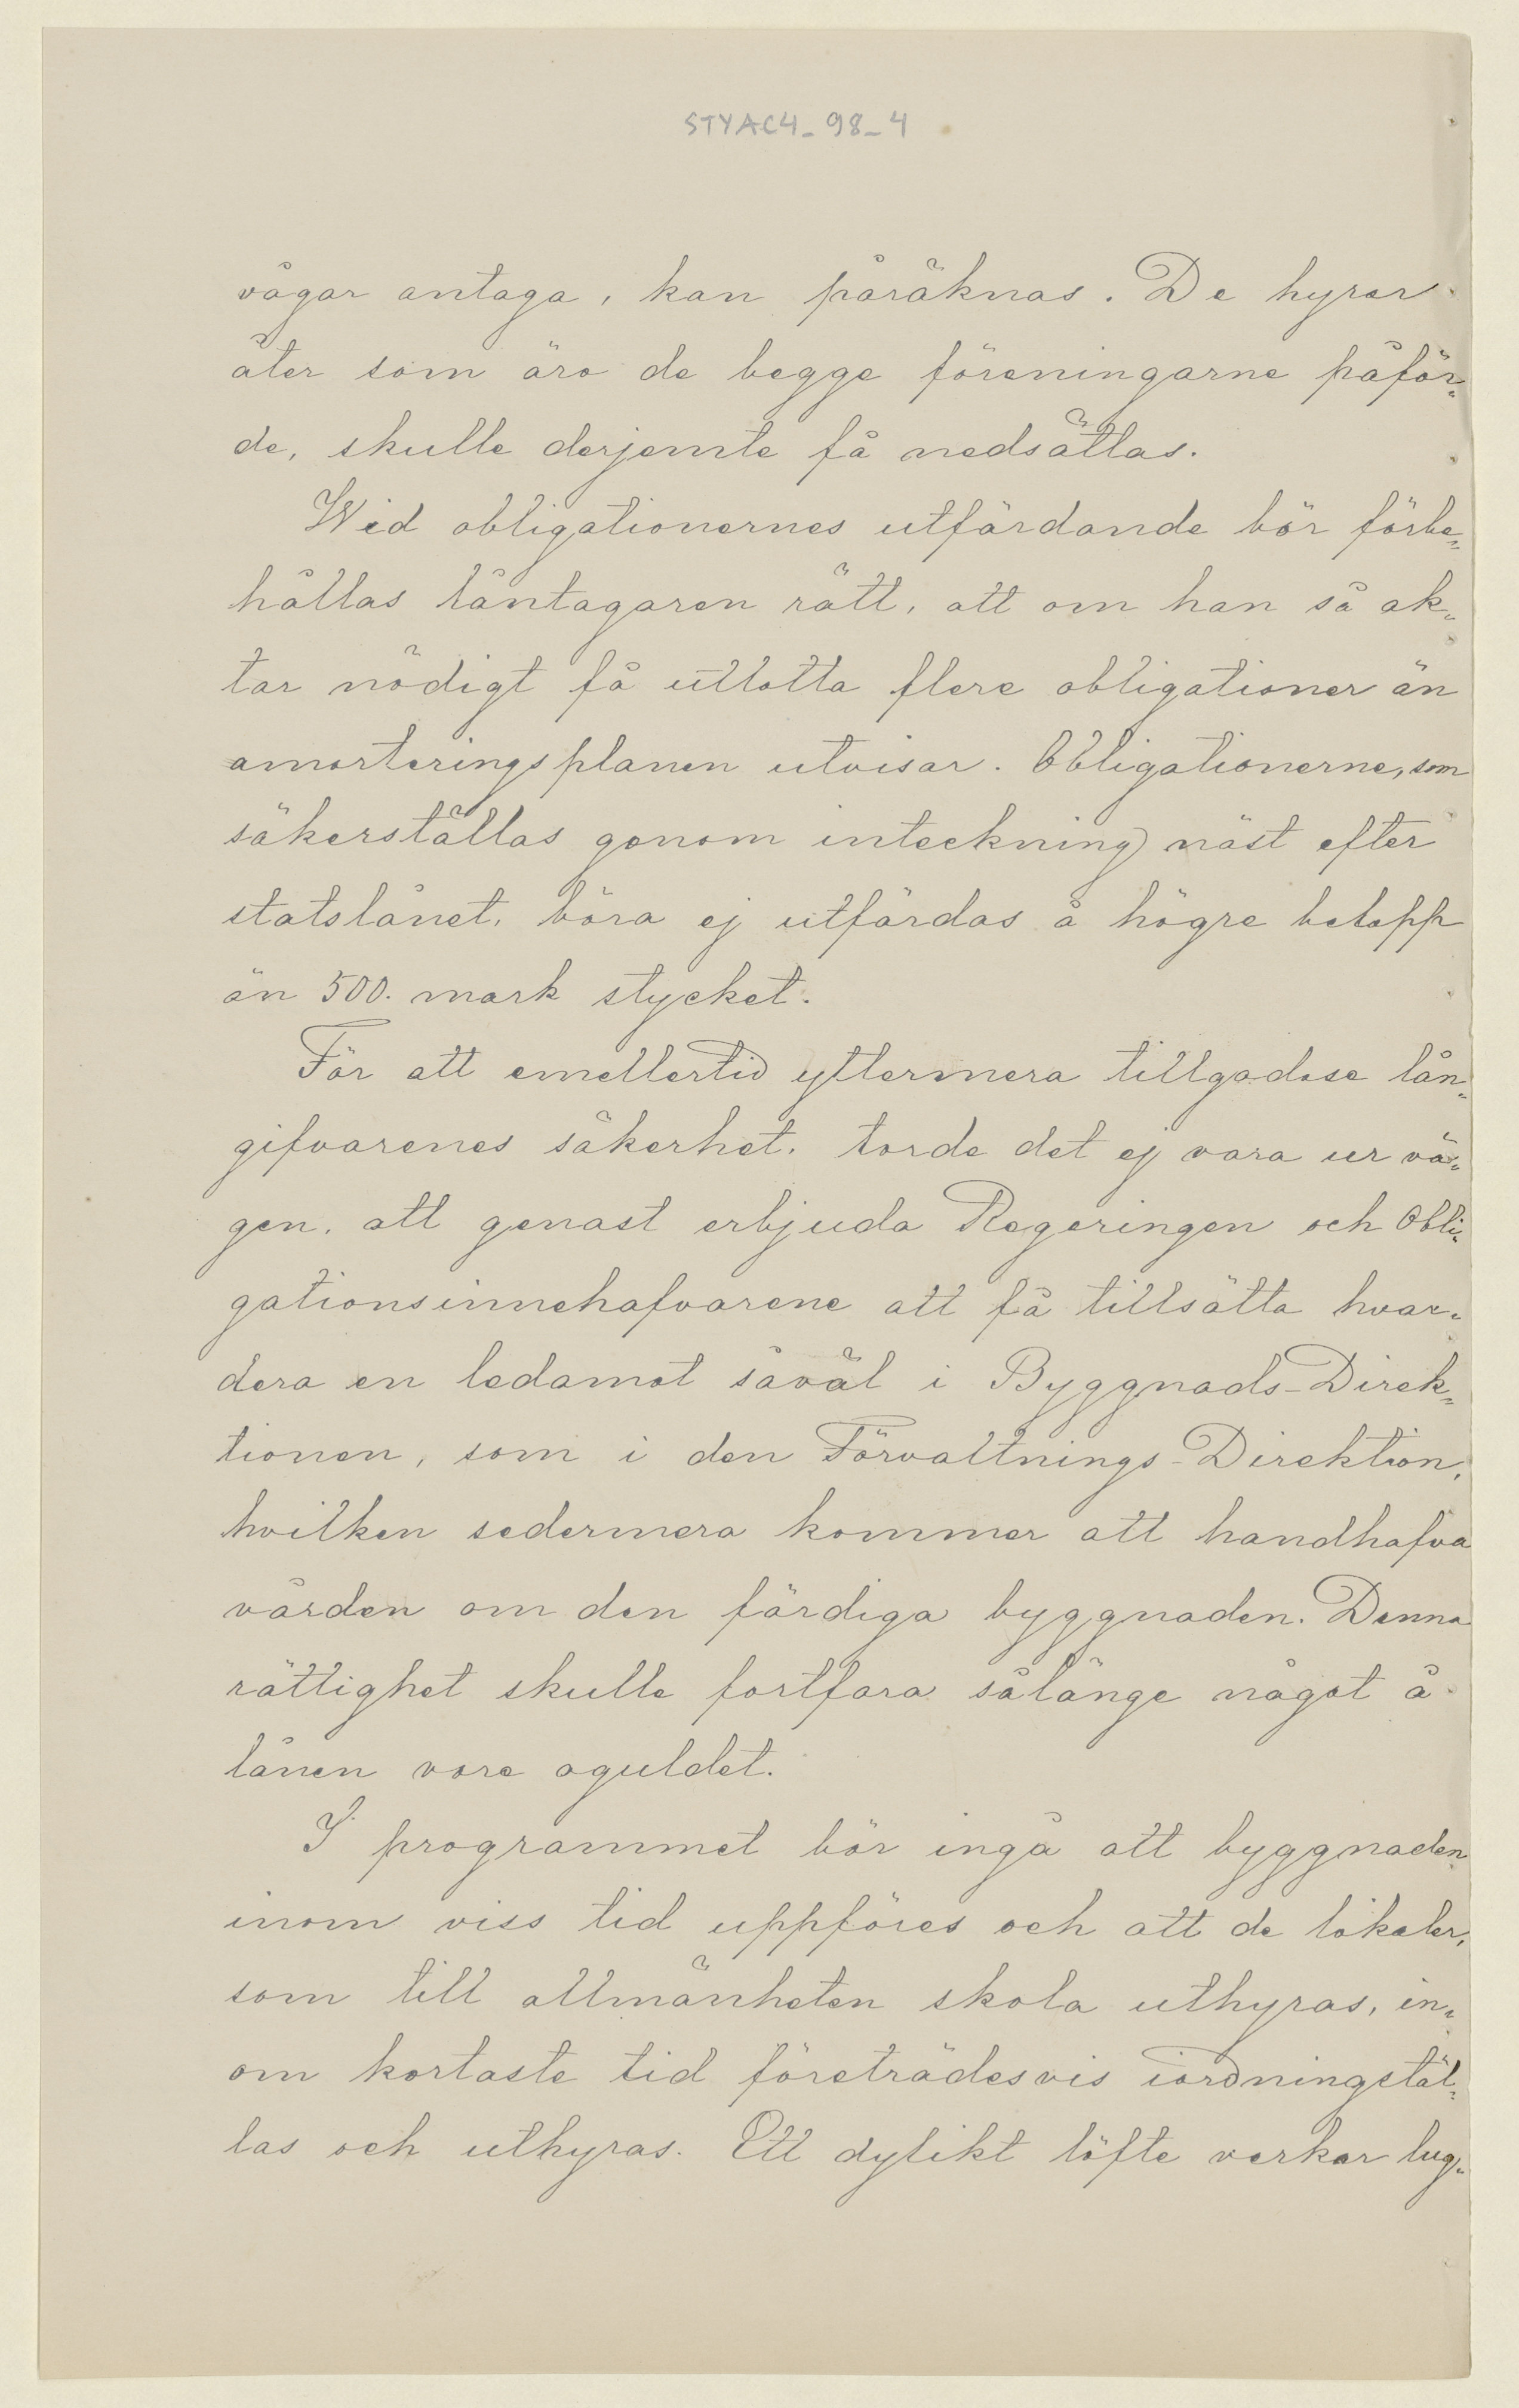 STYAC4_98_4
vågar antaga, kan påräknas. De hyror
åter som äro de begge föreningarne påför„
de, skulle derjemte få nedsättas.
Wid obligationernes utfärdande bör förbe„
hållas låntagaren rätt, att om han så ak„
tar nödigt få utlotta flere obligationer än
amorteringsplanen utvisar. Obligationerne, som
säkerställas genom inteckning näst efter
statslånet, böra ej utfärdas å högre belopp
än 500. mark stycket.
För att emellertid yttermera tillgodose lån„
gifvarenes säkerhet, torde det ej vara ur vä„
gen, att genast erbjuda Regeringen och Obli„
gationsinnehafvarene att få tillsätta hvar„
dera en ledamot såväl i Byggnads-Direk„
tionen, som i den Förvaltnings-Direktion,
hvilken sedermera kommer att handhafva
vården om den färdiga byggnaden. Denna
rättighet skulle fortfara sålänge något å
lånen vore oguldet.
I programmet bör ingå att byggnaden
inom viss tid uppföres och att de lokaler,
som till allmänheten skola uthyras, in„
om kortaste tid företrädesvis iordningstäl„
las och uthyras. Ett dylikt löfte verkar lug„